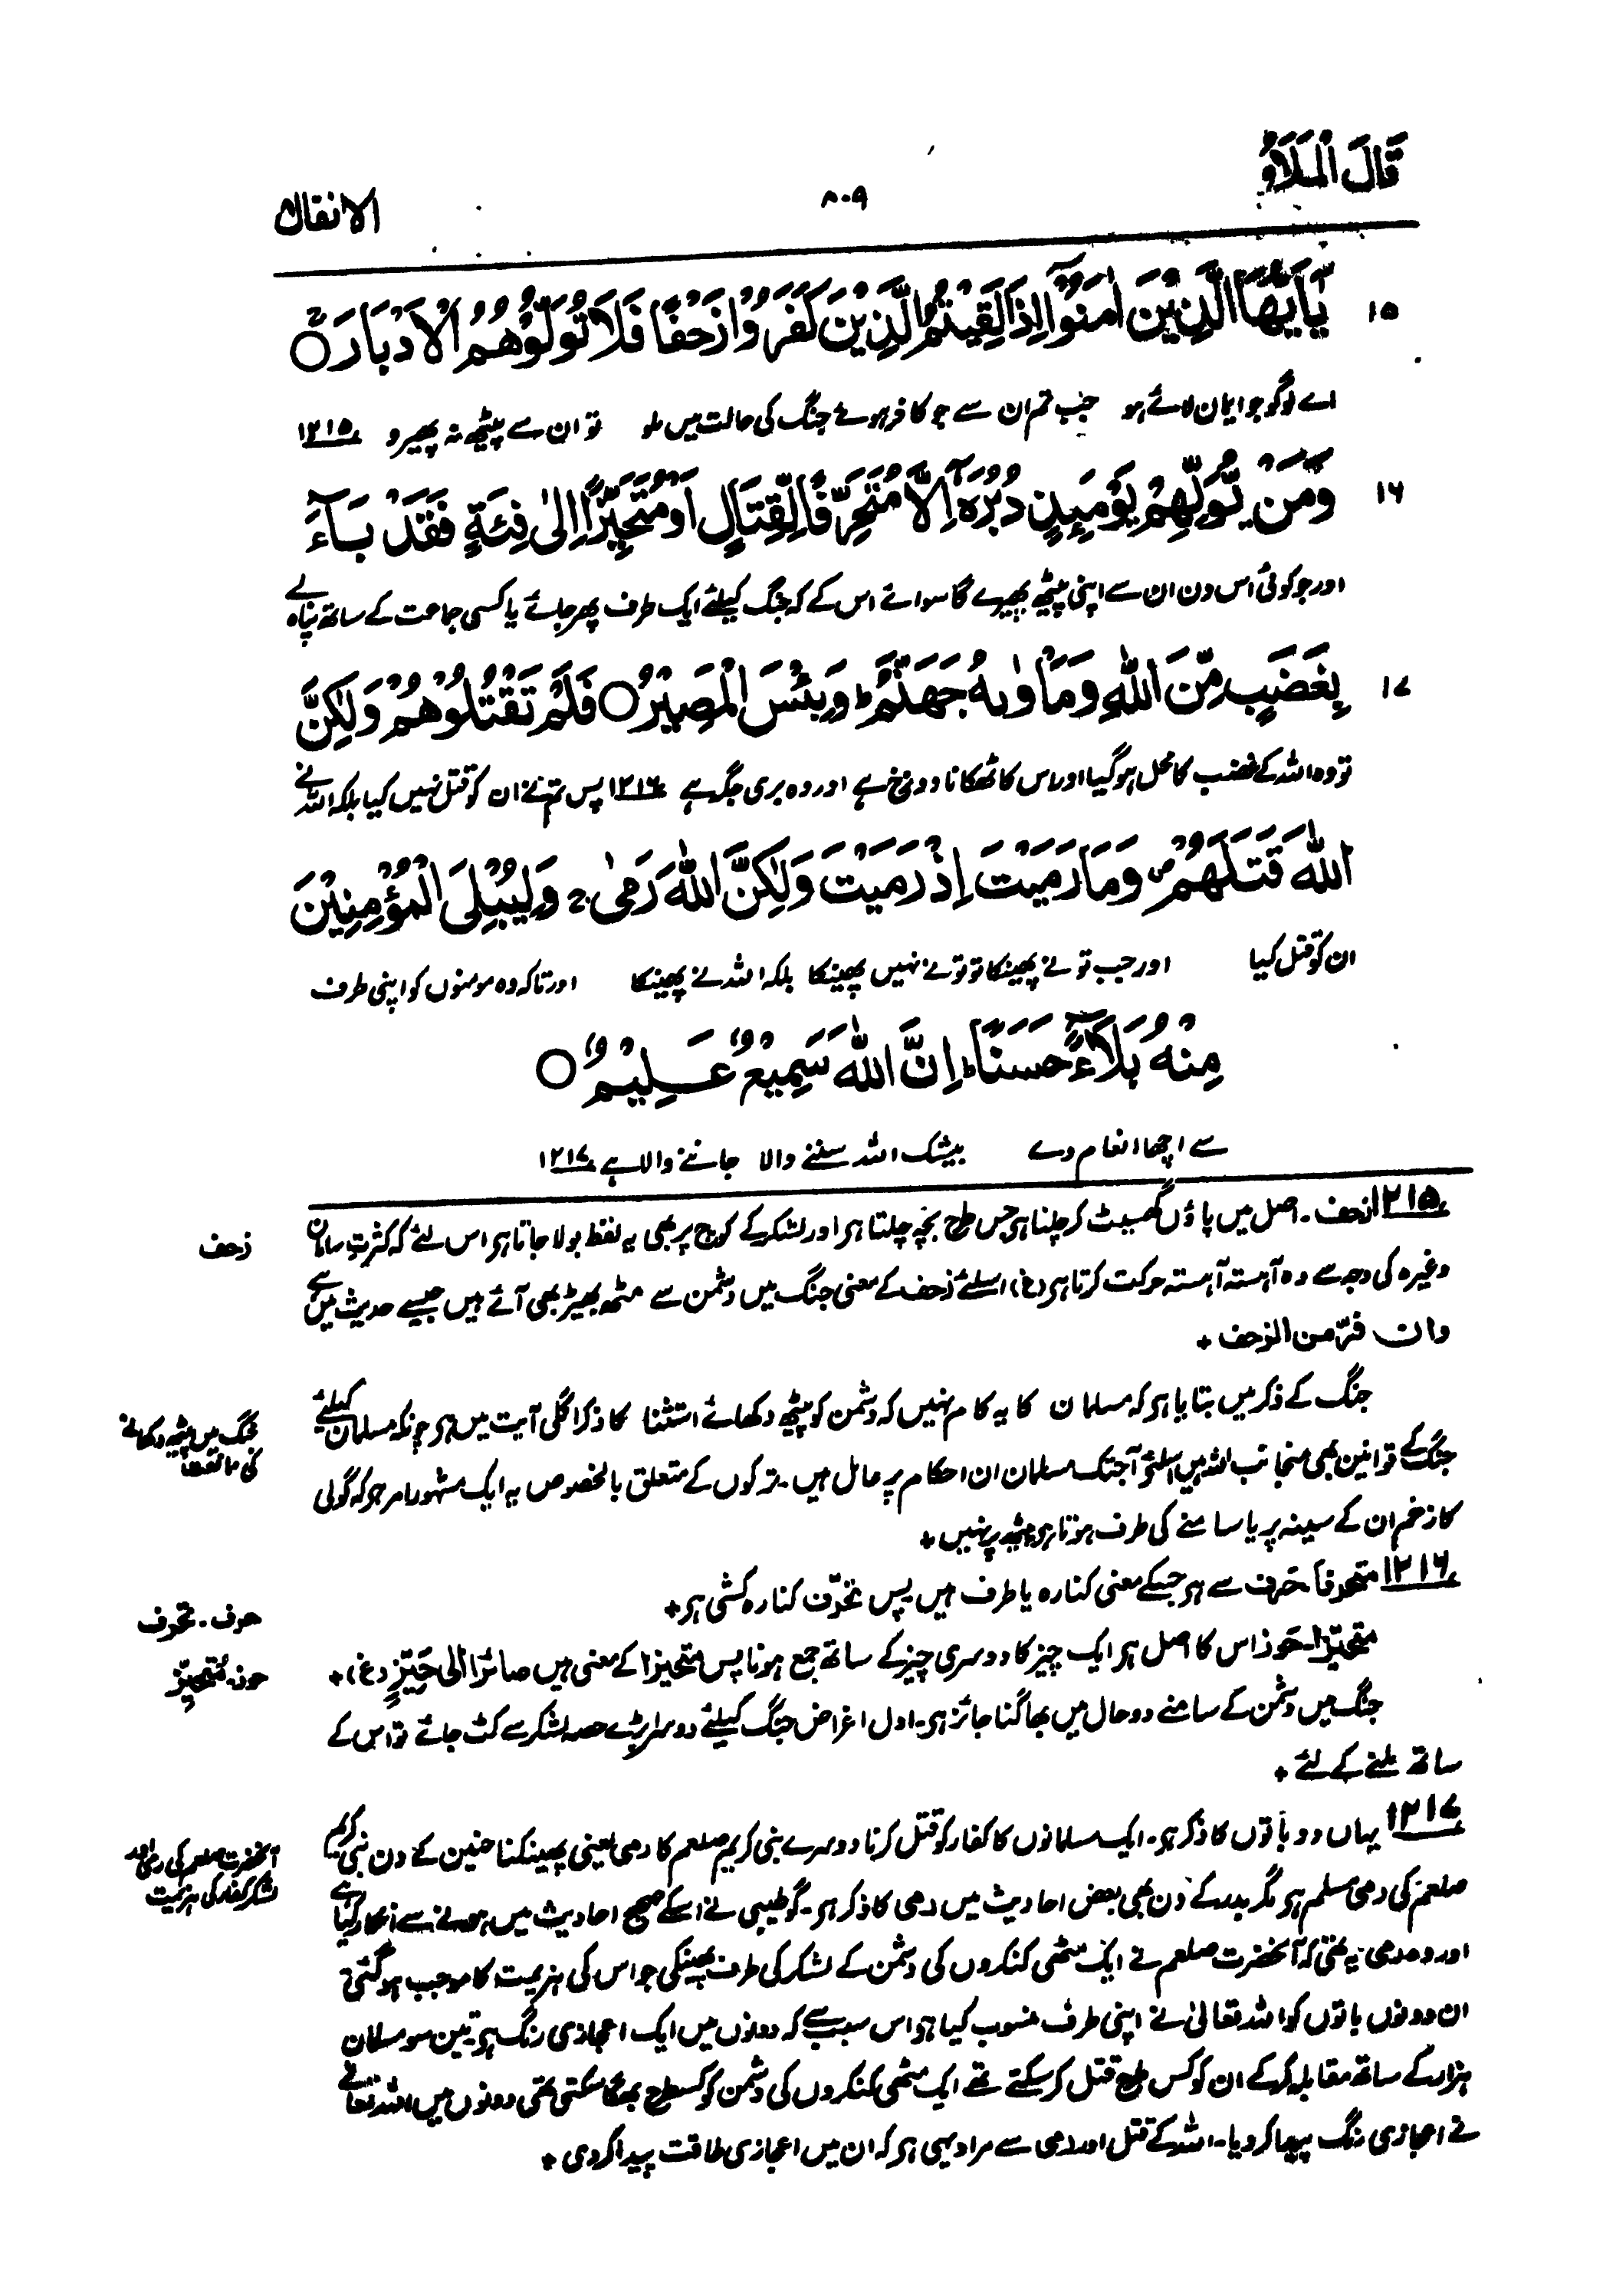 قَالَ الْمَلَاُ
٨٠٩
الانفال
١٥
يٰۤاَيُّهَا الَّذِيْنَ اٰمَنُوْۤا اِذَا لَقِيْتُمُ الَّذِيْنَ كَفَرُوْا زَحْفًا فَلَا تُوَلُّوْهُمُ الْاَدْبَارَ ○
اے لوگو جو ایمان لائے ہو جب تم ان سے جو کافر ہوئے جنگ کی حالت میں ملو تو ان سے پیٹھ نہ پھیرو ۱۲۱۵
١٦
وَمَنْ يُّوَلِّهِمْ يَوْمَئِذٍ دُبُرَهٗۤ اِلَّا مُتَحَرِّفًا لِّقِتَالٍ اَوْ مُتَحَيِّزًا اِلٰى فِئَةٍ فَقَدْ بَآءَ
اور جو کوئی اس دن ان سے اپنی پیٹھ پھیرے گا سوائے اس کے کہ جنگ کیلئے ایک طرف پھر جائے یا کسی جماعت کے ساتھ پناہ لے
١٧
بِغَضَبٍ مِّنَ اللّٰهِ وَمَاْوٰىهُ جَهَنَّمُ ؕ وَبِئْسَ الْمَصِيْرُ ○ فَلَمْ تَقْتُلُوْهُمْ وَلٰكِنَّ
تو وہ اللہ کے غضب کا محل ہو گیا اور اس کا ٹھکانا دوزخ ہے اور وہ بری جگہ ہے ۱۲۱۶ پس تم نے ان کو قتل نہیں کیا بلکہ اللہ نے
اللّٰهَ قَتَلَهُمْ ۪ وَمَا رَمَيْتَ اِذْ رَمَيْتَ وَلٰكِنَّ اللّٰهَ رَمٰى ۚ وَلِيُبْلِىَ الْمُؤْمِنِيْنَ
ان کو قتل کیا اور جب تو نے پھینکا تو تو نے نہیں پھینکا بلکہ اللہ نے پھینکا اور تاکہ وہ مومنوں کو اپنی طرف
مِنْهُ بَلَآءً حَسَنًا ؕ اِنَّ اللّٰهَ سَمِيْعٌ عَلِيْمٌ ○
سے اچھا انعام دے بیشک اللہ سننے والا جاننے والا ہے ۱۲۱۷
۱۲۱۵ زحف۔ اصل میں پاؤں گھسیٹ کر چلنا ہے جس طرح بچہ چلتا ہر اور لشکر کے کوچ پر بھی یہ لفظ بولا جاتا ہر اس لئے کہ کثرتِ سامان
زحف
وغیرہ کی وجہ سے وہ آہستہ آہستہ حرکت کرتا ہر (غ) اسلئے زحف کے معنی جنگ میں دشمن سے مٹھ بھیڑ بھی آئے ہیں جیسے حدیث میں ہے
وان فرّ من الزحف +
جنگ کے ذکر میں بتایا ہر کہ مسلمان کا یہ کام نہیں کہ دشمن کو پیٹھ دکھائے استثنا کا ذکر اگلی آیت میں ہر چونکہ مسلمان کیلئے
جنگ میں پیٹھ دکھانے
کی ممانعت
جنگ کے قوانین بھی منجانب اللہ ہیں اسلئے آجتک مسلمان ان احکام پر عامل ہیں۔ ترکوں کے متعلق بالخصوص یہ ایک مشہور امر ہر کہ گولی
کا زخم ان کے سینہ پر یا سامنے کی طرف ہوتا ہر پیٹھ پر نہیں +
۱۲۱۶ متحرفاً۔ حَرف سے ہر جسکے معنی کنارہ یا طرف ہیں پس تحرّف کنارہ کشی ہر +
حرف۔ تحرف
متحیّزا۔ حَوز اس کا اصل ہر ایک چیز کا دوسری چیز کے ساتھ جمع ہونا پس متحیزا کے معنی ہیں صائرًا الی حَیِّزٍ (غ) +
حوز۔ مُتحیِّز
جنگ میں دشمن کے سامنے دو حال میں بھاگنا جائز ہر۔ اول اغراض جنگ کیلئے دوسرا بڑے حصہ لشکر سے کٹ جائے تو اس کے
ساتھ ملنے کے لئے +
۱۲۱۷ یہاں دو باتوں کا ذکر ہر۔ ایک مسلمانوں کا کفار کو قتل کرنا دوسرے نبی کریم صلعم کا رمی یعنی پھینکنا حنین کے دن نبی کریم
آنحضرت صلعم کی رمی اور
لشکر کفار کی ہزیمت
صلعم کی رمی مسلم ہر مگر بدر کے دن بھی بعض احادیث میں رمی کا ذکر ہر۔ گو طیبی نے اسکے صحیح احادیث میں ہونے سے انکار کیا ہے
اور وہ رمی یہ تھی کہ آنحضرت صلعم نے ایک مٹھی کنکروں کی دشمن کے لشکر کی طرف پھینکی جو اس کی ہزیمت کا موجب ہو گئی
ان دونوں باتوں کو اللہ تعالیٰ نے اپنی طرف منسوب کیا ہر اس سبب سے کہ دونوں میں ایک اعجازی رنگ ہر تین سو مسلمان
ہزار کے ساتھ مقابلہ کر کے ان کو کس طرح قتل کر سکتے تھے ایک مٹھی کنکروں کی دشمن کو کسطرح بھگا سکتی تھی دونوں میں اللہ تعالے
نے اعجازی رنگ پیدا کر دیا۔ اللہ کے قتل اور رمی سے مراد یہی ہر کہ ان میں اعجازی طاقت پیدا کر دی +